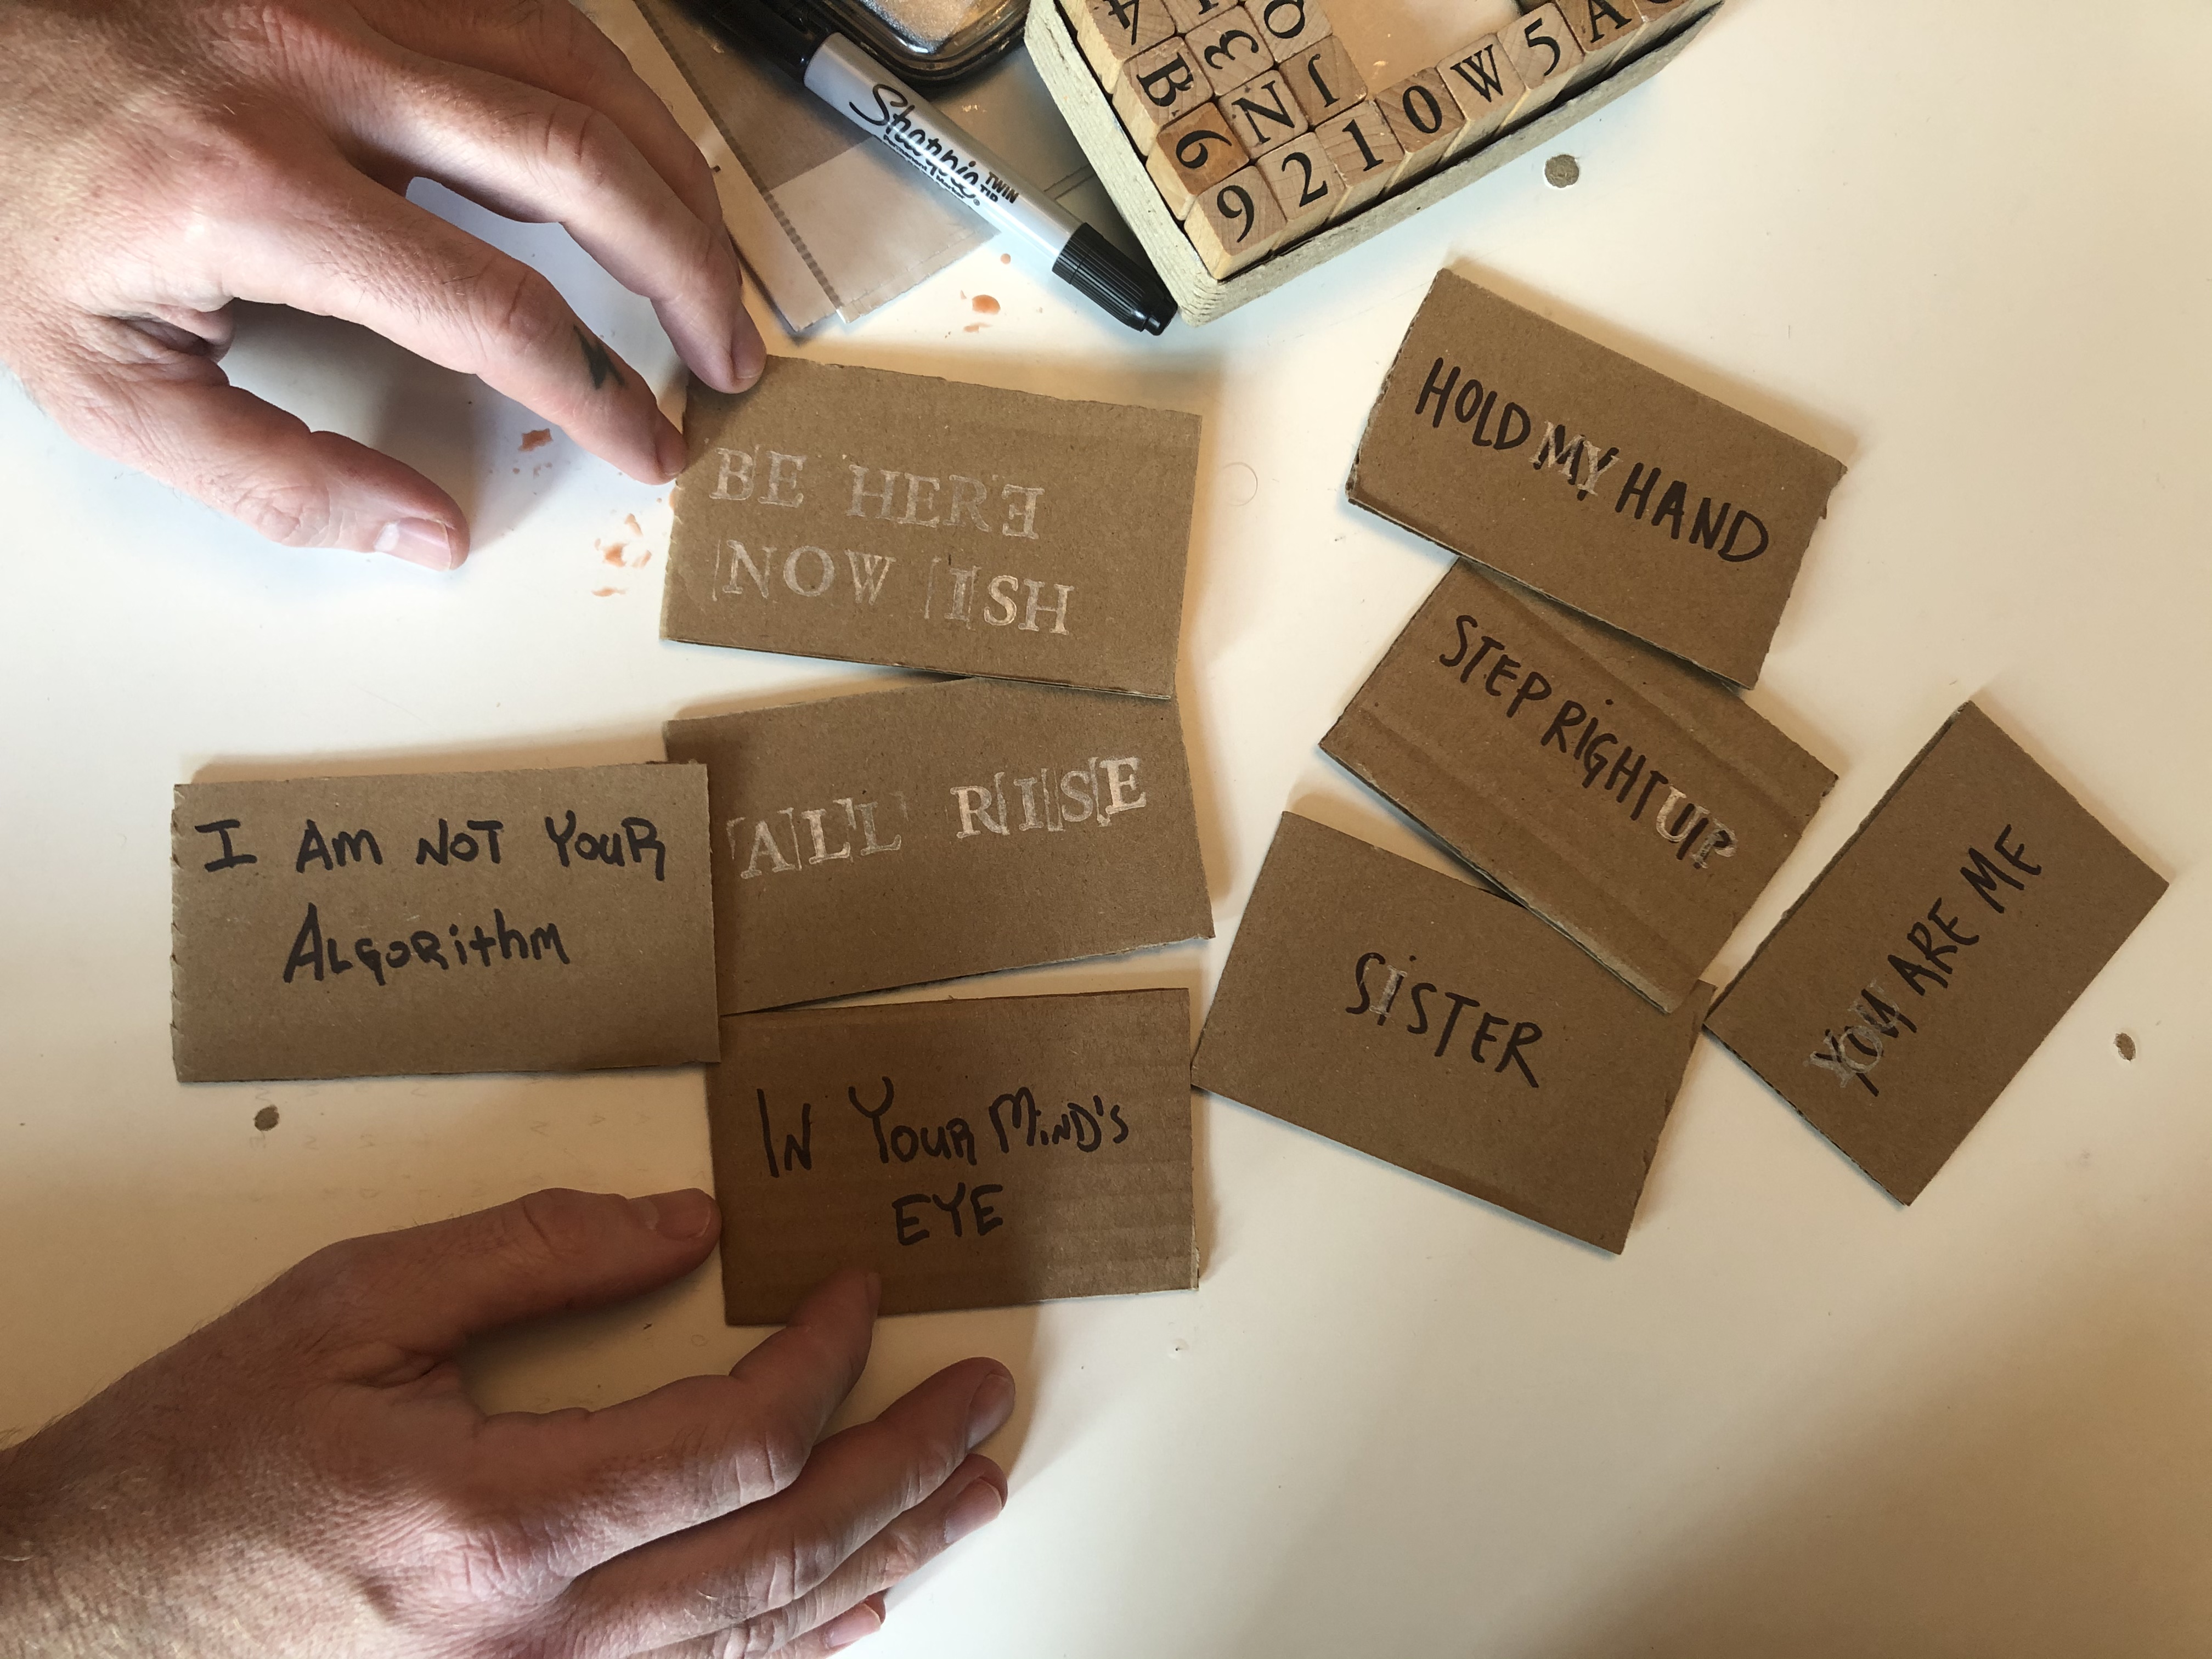 Sharpie TWIN TIP
4
3 O
B N I
6
9 2 1 0 W 5 A
BE HERE
NOW ISH
HOLD MY HAND
STEP RIGHT UP
ALL RISE
I AM NOT YOUR
ALGORithm
SiSTER
YOU ARE ME
IN YOUR MiND'S
EYE